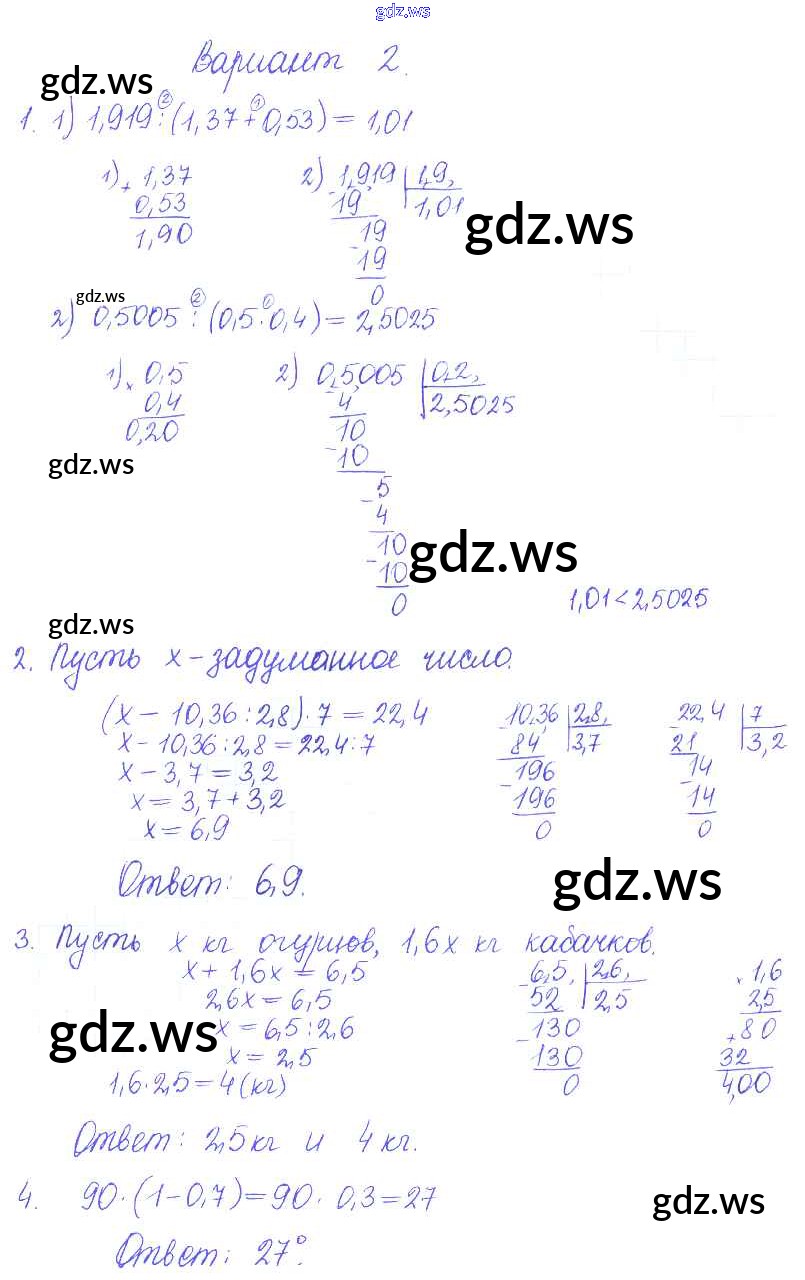 gdz.ws
Вариант 2.
gdz.ws
1. 1) 1,919 : (1,37 + 0,53) = 1,01
② ①
1) + 1,37
0,53
1,90
2) 1,919 | 1,9,
19 | 1,01
19
- 19
0
gdz.ws
gdz.ws
2) 0,5005 : (0,5 · 0,4) = 2,5025
② ①
1) × 0,5
0,4
0,20
2) 0,5005 | 0,2,
- 4 | 2,5025
10
- 10
5
- 4
10
- 10
0
gdz.ws
gdz.ws
1,01 < 2,5025
gdz.ws
2. Пусть x – задуманное число.
(x – 10,36 : 2,8) · 7 = 22,4
x - 10,36 : 2,8 = 22,4 : 7
x – 3,7 = 3,2
x = 3,7 + 3,2
x = 6,9
10,36 | 2,8,
84 | 3,7
196
- 196
0
22,4 | 7
21 | 3,2
14
- 14
0
Ответ: 6,9.
gdz.ws
3. Пусть x кг огурцов, 1,6x кг кабачков.
x + 1,6x = 6,5
2,6x = 6,5
x = 6,5 : 2,6
x = 2,5
1,6 · 2,5 = 4 (кг)
gdz.ws
- 6,5, | 2,6,
52 | 2,5
- 130
130
0
× 1,6
2,5
+ 80
32
4,00
Ответ: 2,5 кг и 4 кг.
4. 90 · (1 – 0,7) = 90 · 0,3 = 27
gdz.ws
Ответ: 27°.